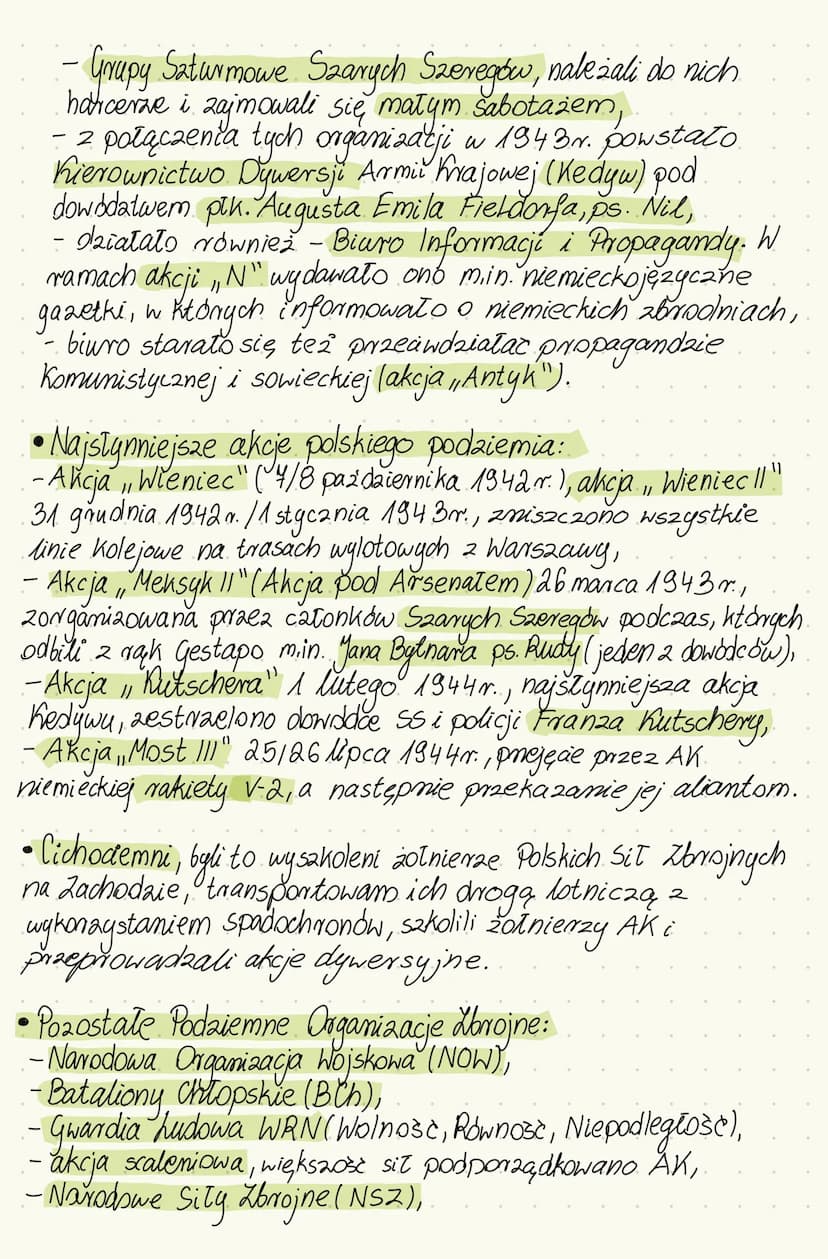 - Grupy Szturmowe Szarych Szeregów, należali do nich
harcerze i zajmowali się małym sabotażem,
- z połączenia tych organizacji w 1943r. powstało
Kierownictwo Dywersji Armii Krajowej (Kedyw) pod
dowództwem płk. Augusta Emila Fieldorfa, ps. Nil,
- działało również - Biuro Informacji i Propagandy. W
ramach akcji „N" wydawało ono m.in. niemieckojęzyczne
gazetki, w których informowało o niemieckich zbrodniach,
- biuro starało się też przeciwdziałać propagandzie
komunistycznej i sowieckiej (akcja „Antyk").
• Najsłynniejsze akcje polskiego podziemia:
- Akcja „Wieniec" (7/8 października 1942r.), akcja „Wieniec II"
31 grudnia 1942r. / 1 stycznia 1943r., zniszczono wszystkie
linie kolejowe na trasach wylotowych z Warszawy,
- Akcja „Meksyk II" (Akcja pod Arsenałem) 26 marca 1943r.,
zorganizowana przez członków Szarych Szeregów podczas, których
odbili z rąk Gestapo m.in. Jana Bytnara ps. Rudy (jeden z dowódców),
- Akcja „Kutschera" 1 lutego 1944r., najsłynniejsza akcja
Kedywu, zestrzelono dowódcę SS i policji Franza Kutschery,
- Akcja „Most III" 25/26 lipca 1944r., przejęcie przez AK
niemieckiej rakiety V-2, a następnie przekazanie jej aliantom.
• Cichociemni, byli to wyszkoleni żołnierze Polskich Sił Zbrojnych
na Zachodzie, transportowano ich drogą lotniczą z
wykorzystaniem spadochronów, szkolili żołnierzy AK i
przeprowadzali akcje dywersyjne.
• Pozostałe Podziemne Organizacje Zbrojne:
- Narodowa Organizacja Wojskowa (NOW),
- Bataliony Chłopskie (BCh),
- Gwardia Ludowa WRN (Wolność, Równość, Niepodległość),
- akcja scaleniowa, większość sił podporządkowano AK,
- Narodowe Siły Zbrojne (NSZ),